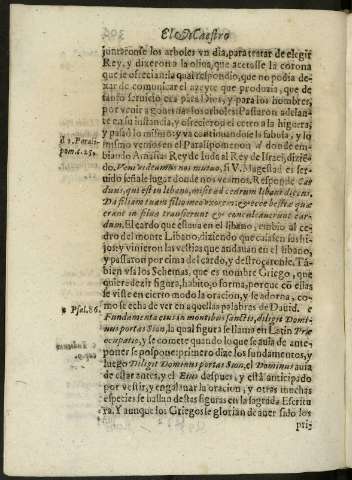 El Maestro
juntaronse los arboles vn dia, para tratar de elegir
Rey, y dixeron a la oliua, que acetasse la corona
que le ofrecian: la qual respondio, que no podia de-
xar de comunicar el azeyte que produzia, que de
tanto seruicio era para Dios, y para los hombres,
por venir a gouernar los arboles: Passaron adelan-
te en su instancia, y ofrecieron el cetro a la higuera,
y passò lo mismo: y va continuandose la fabula, y lo
mismo vemos en el Paralipomenon d donde em-
biando Amasias Rey de Iuda al Rey de Israel, diziē-
do. Veni videamus nos mutuo, si V. Magestad es ser-
uido señale lugar donde nos veamos, Responde Car
duus, qui est in libano, misit ad cedrum libani dicens,
Da filiam tuam filio meo vxorem: & ecce bestiæ quæ
erant in silua transierunt & conculcauerunt car-
dum. El cardo que estaua en el libano, embio al ce-
dro del monte Libano, diziendo que casassen sus hi-
jos: y vinieron las vestias que andauan en el libano,
y passaron por cima del cardo, y destroçaronle. Tā-
bien vsa los Schemas, que es nombre Griego, que
quiere dezir figura, habito, o forma, porque cō ellas
se viste en cierto modo la oracion, y se adorna, co-
mo se echa de ver en aquellas palabras de Dauid. e
Fundamenta eius in montibus sanctis, diligit Domi-
nus portas Sion, la qual figura se llama en Latin Præ
ocupatio, y se comete quando lo que se auia de ante-
poner se pospone: primero dize los fundamentos, y
luego Diligit Dominus portas Sion, el Dominus auia
de estar antes, y el Eius despues, y està anticipado
por vestir, y engalanar la oracion, y otras muchas
especies se hallan destas figuras en la sagrada Escritu
ra. Y aunque los Griegos se glorian de auer sido los
pri-
d 2. Paralip-
pom. c. 25.
e Psal. 86.